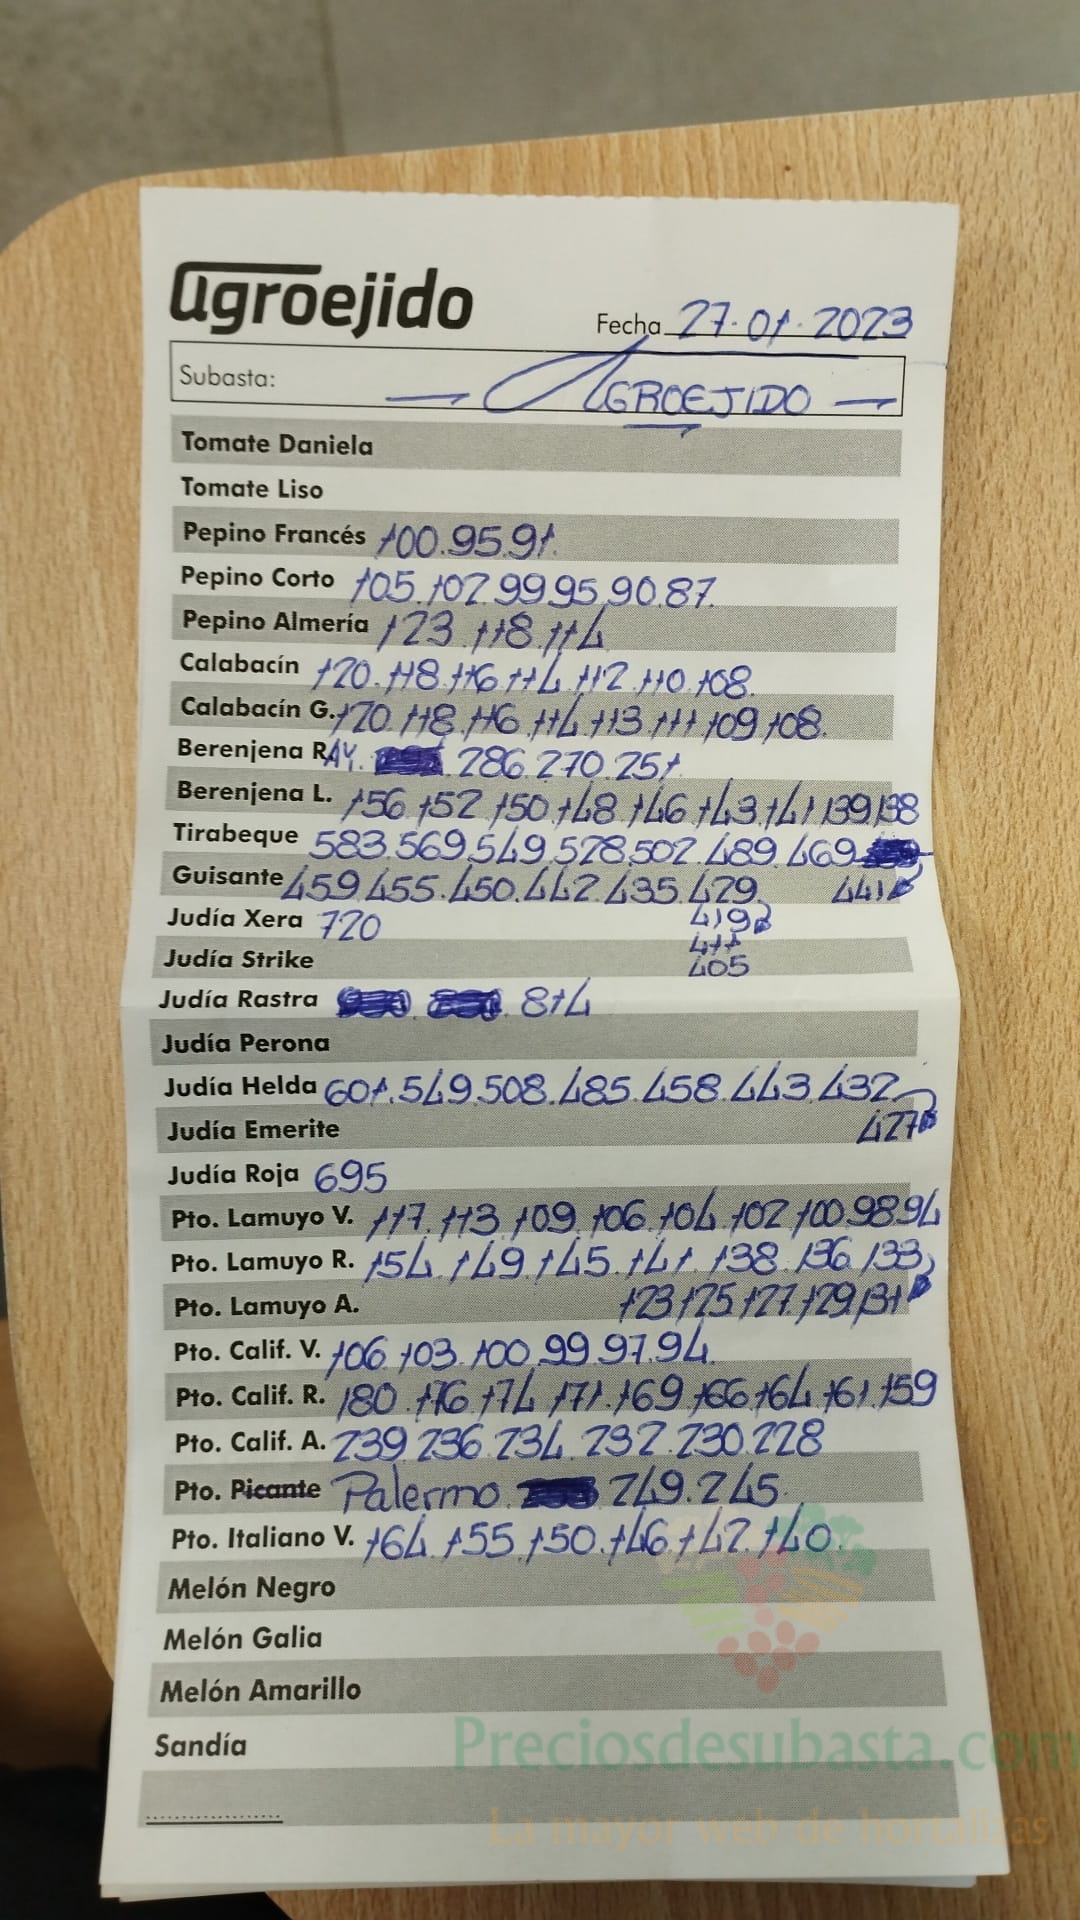 agroejido
Fecha 27.01.2023
Subasta: AGROEJIDO
Tomate Daniela
Tomate Liso
Pepino Francés 100.95.91.
Pepino Corto 105.102.99.95.90.87.
Pepino Almería 123.118.114
Calabacín 120.118.116.114.112.110.108.
Calabacín G. 120.118.116.114.113.111.109.108.
Berenjena RAY. 286.270.251.
Berenjena L. 156.152.150.148.146.143.141.139.138
Tirabeque 583.569.549.528.502.489.469
441
Guisante 459.455.450.442.435.429.
419
411
405
Judía Xera 720
Judía Strike
Judía Rastra 814
Judía Perona
Judía Helda 601.549.508.485.458.443.432
427
Judía Emerite
Judía Roja 695
Pto. Lamuyo V. 117.113.109.106.104.102.100.98.94
Pto. Lamuyo R. 154.149.145.141.138.136.133
123.125.127.129.131
Pto. Lamuyo A.
Pto. Calif. V. 106.103.100.99.97.94.
Pto. Calif. R. 180.176.174.171.169.166.164.161.159
Pto. Calif. A. 239.236.234.232.230.228
Pto. Picante Palermo 249.245.
Pto. Italiano V. 164.155.150.146.142.140.
Melón Negro
Melón Galia
Melón Amarillo
Sandía
Preciosdesubasta.com
La mayor web de hortalizas